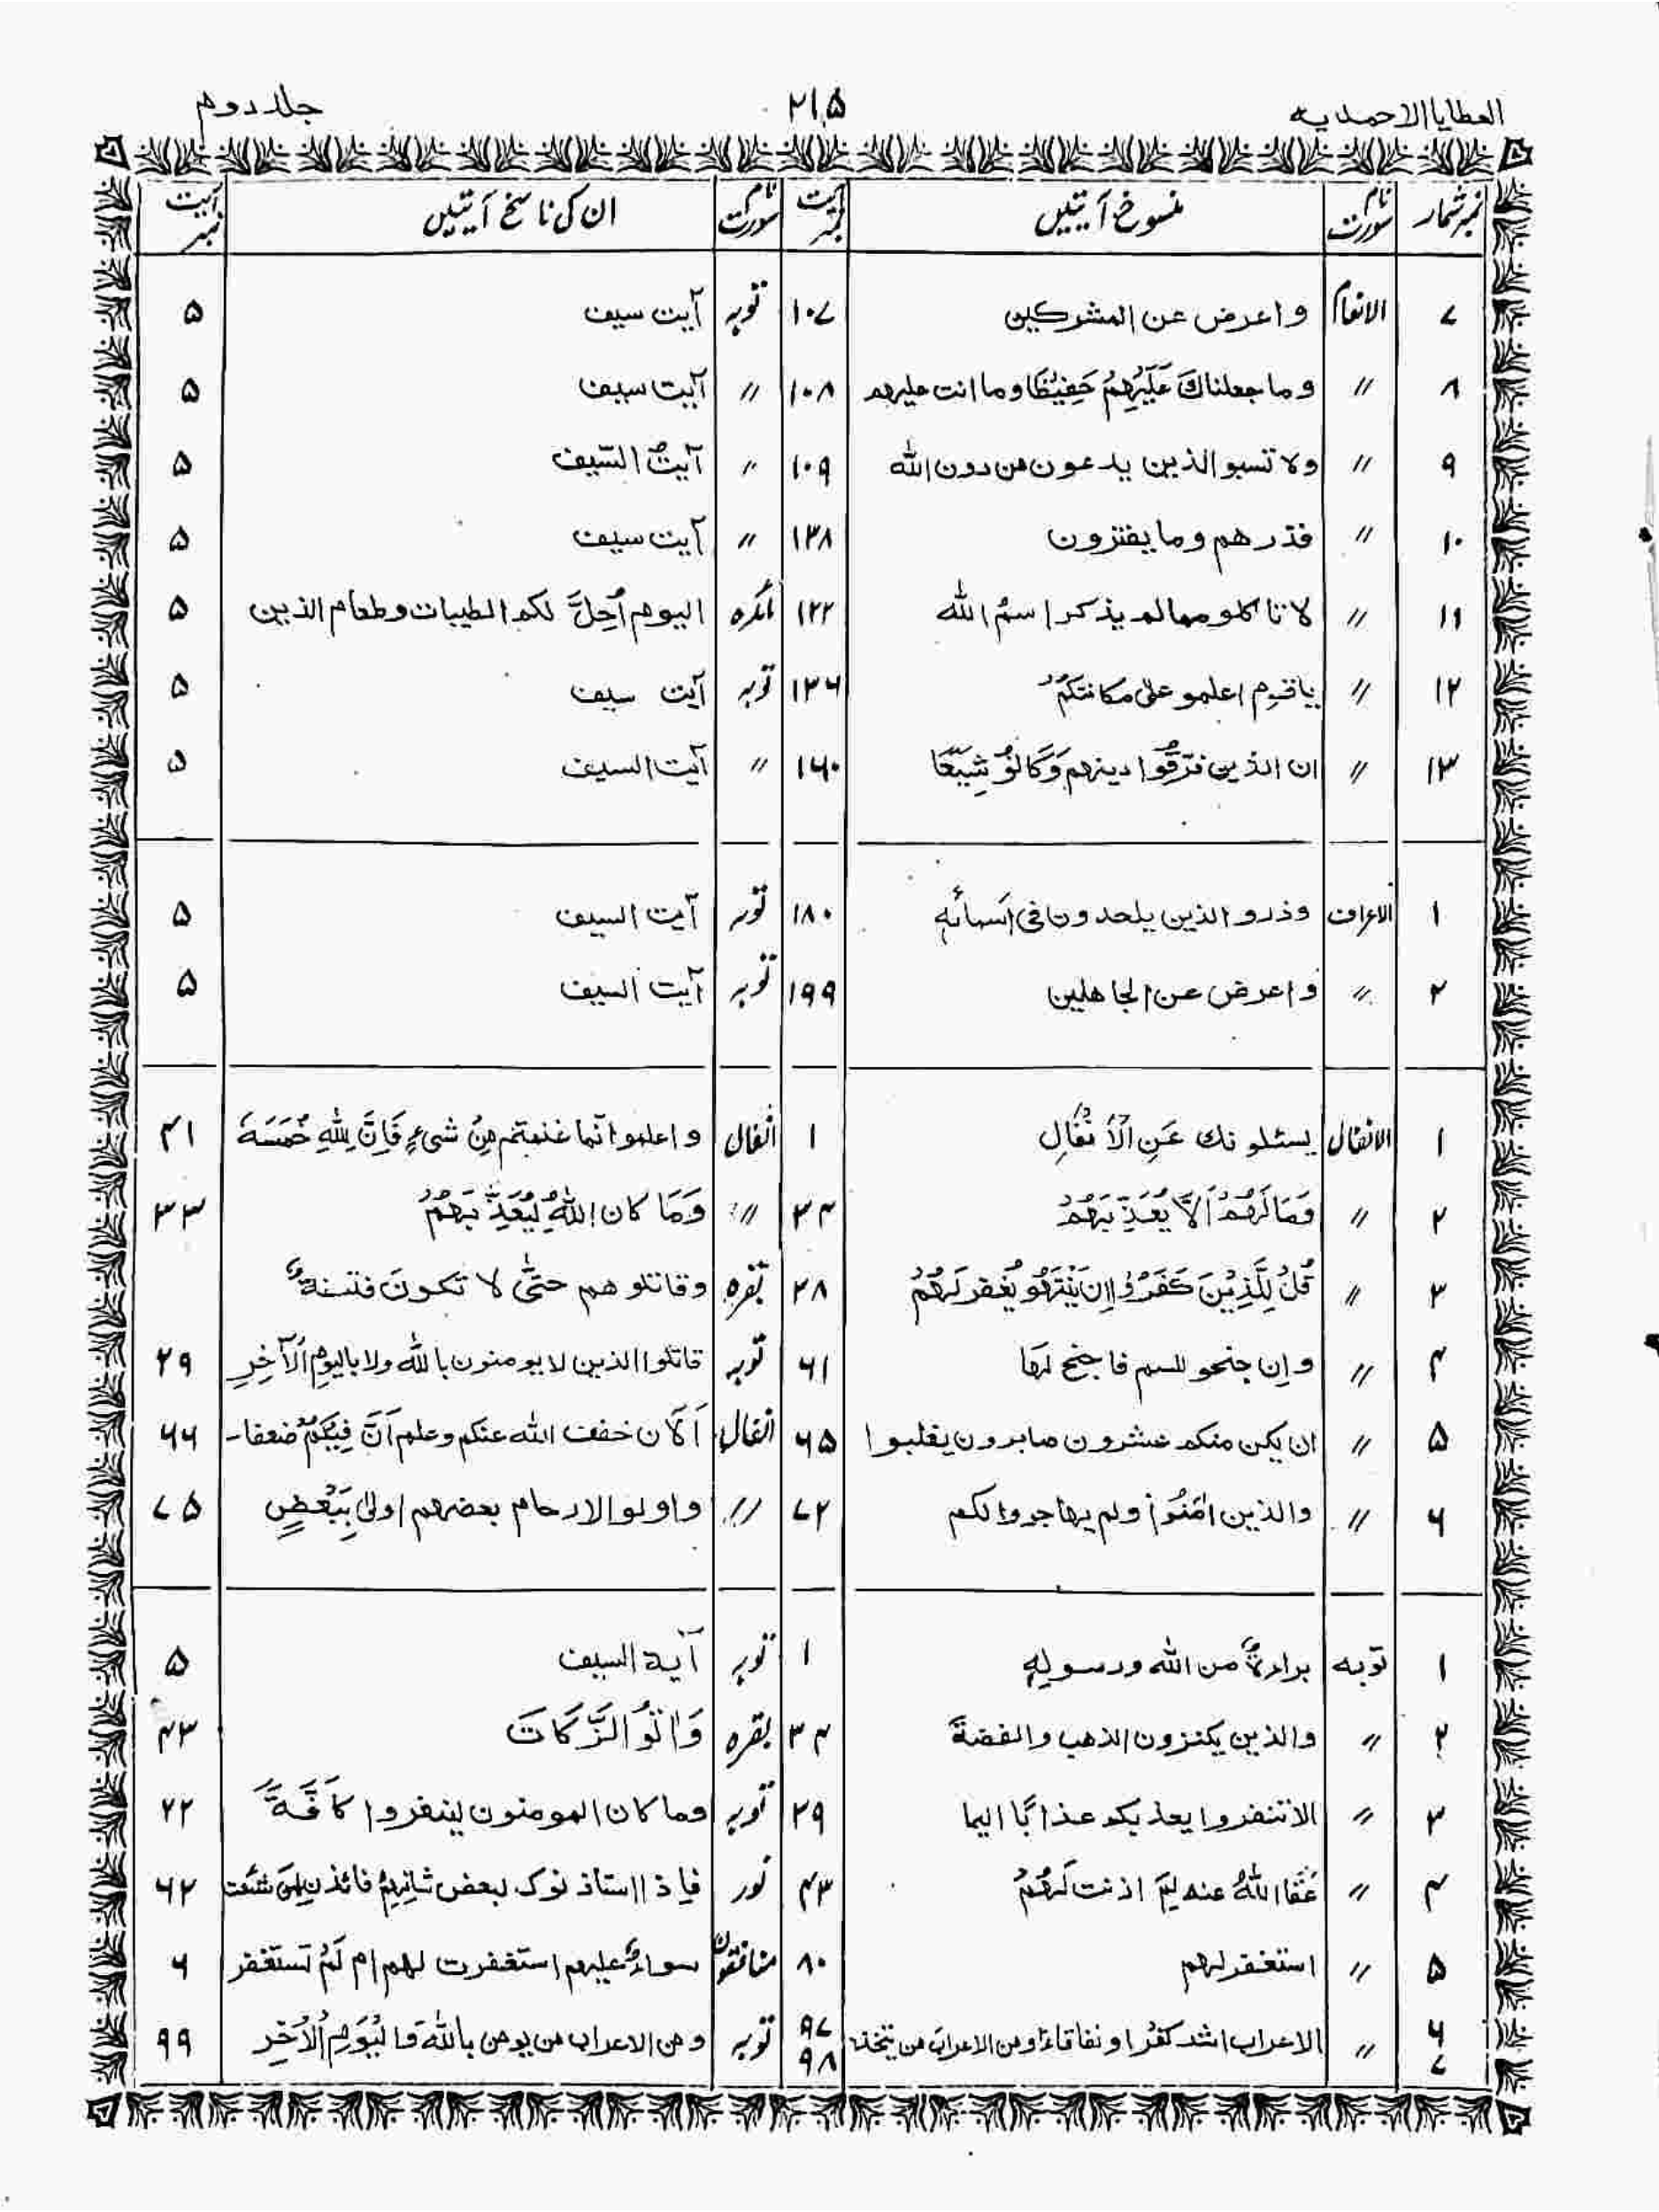 العطایا الاحمدیہ ۲۱۵ جلد دوم
نمبر شمار نام سورت منسوخ آیتیں آیت نمبر نام سورت ان کی ناسخ آیتیں آیت نمبر
۷ الانعام واعرض عن المشرکین ۱۰۷ توبہ آیت سیف ۵
۸ 〃 وما جعلناكَ عَلَيْهِمْ حَفِيْظًا وما انت علیهم ۱۰۸ 〃 آیت سیف ۵
۹ 〃 ولا تسبو الذین یدعون من دون الله ۱۰۹ 〃 آیتٌ السّیف ۵
۱۰ 〃 فذرهم وما یفترون ۱۳۸ 〃 آیت سیف ۵
۱۱ 〃 لا تاکلو مما لم یذکر اسمُ الله ۱۲۲ مائدہ الیوم اُحِلَّ لکم الطیبات وطعام الذین ۵
۱۲ 〃 یا قومِ اعلمو علیٰ مکانتکُمْ ۱۳۶ توبہ آیت سیف ۵
۱۳ 〃 ان الذین فرّقُوا دینهم وَكَانُوْ شِيَعًا ۱۶۰ 〃 آیت السیف ۵
۱ الاعراف وذرو الذین یلحدون فی اَسمائهٖ ۱۸۰ توبہ آیت السیف ۵
۲ 〃 واعرض عن الجاهلین ۱۹۹ توبہ آیت السیف ۵
۱ الانفال یسئلونك عَنِ الْاَنْفَالِ ۱ انفال واعلموا انّما غنمتم مِنْ شیءٍ فَاِنَّ لِلّٰهِ خُمُسَهٗ ۴۱
۲ 〃 وَمَا لَهُمْ اَلَّا يُعَذِّبَهُمْ ۳۴ 〃 وَمَا کان اللّٰهُ لِيُعَذِّبَهُمْ ۳۳
۳ 〃 قُلْ لِلَّذِيْنَ كَفَرُوْا اِنْ يَنْتَهُوْ يُغفر لَهُمْ ۳۸ بقرہ وقاتلوهم حتّٰی لا تکونَ فتنةٌ
۴ 〃 وان جنحو للسم فاجنح لها ۶۱ توبہ قاتلوا الذین لا یومنون بالله ولا بالیومِ الْآخِرِ ۲۹
۵ 〃 ان یکن منکم عشرون صابرون یغلبوا ۶۵ انفال اَلْآن خفف الله عنکم وعلم اَنَّ فِيْكُمْ ضعفا ۶۶
۶ 〃 والذین اٰمَنُوْا ولم یهاجروا لکم ۷۲ 〃 واولو الارحام بعضهم اولیٰ بِبَعْضٍ ۷۵
۱ توبہ براءةٌ من الله ورسولهٖ ۱ توبہ آیة السیف ۵
۲ 〃 والذین یکنزون الذهب والفضةَ ۳۴ بقرہ وَاٰتُوْ الزَّكَاتَ ۴۳
۳ 〃 الا تنفروا یعذبکم عذابًا الیما ۳۹ توبہ وما کان المومنون لینفروا کَافَّةً ۲۲
۴ 〃 عَفَا اللّٰهُ عنك لِمَ اذنت لَهُمْ ۴۳ نور فاذا استاذنوک لبعض شانِهِمْ فائذن لِمَنْ شئت ۶۲
۵ 〃 استغفر لهم ۸۰ منافقون سواءٌ علیهم استغفرت لهم ام لَمْ تستغفر ۶
۶ ۷ 〃 الاعراب اشد کُفْرا ونفاقا ومن الاعراب من یتخذ ۹۷ ۹۸ توبہ ومن الاعراب من یومن بالله والْيَوْمِ الْاٰخِرِ ۹۹